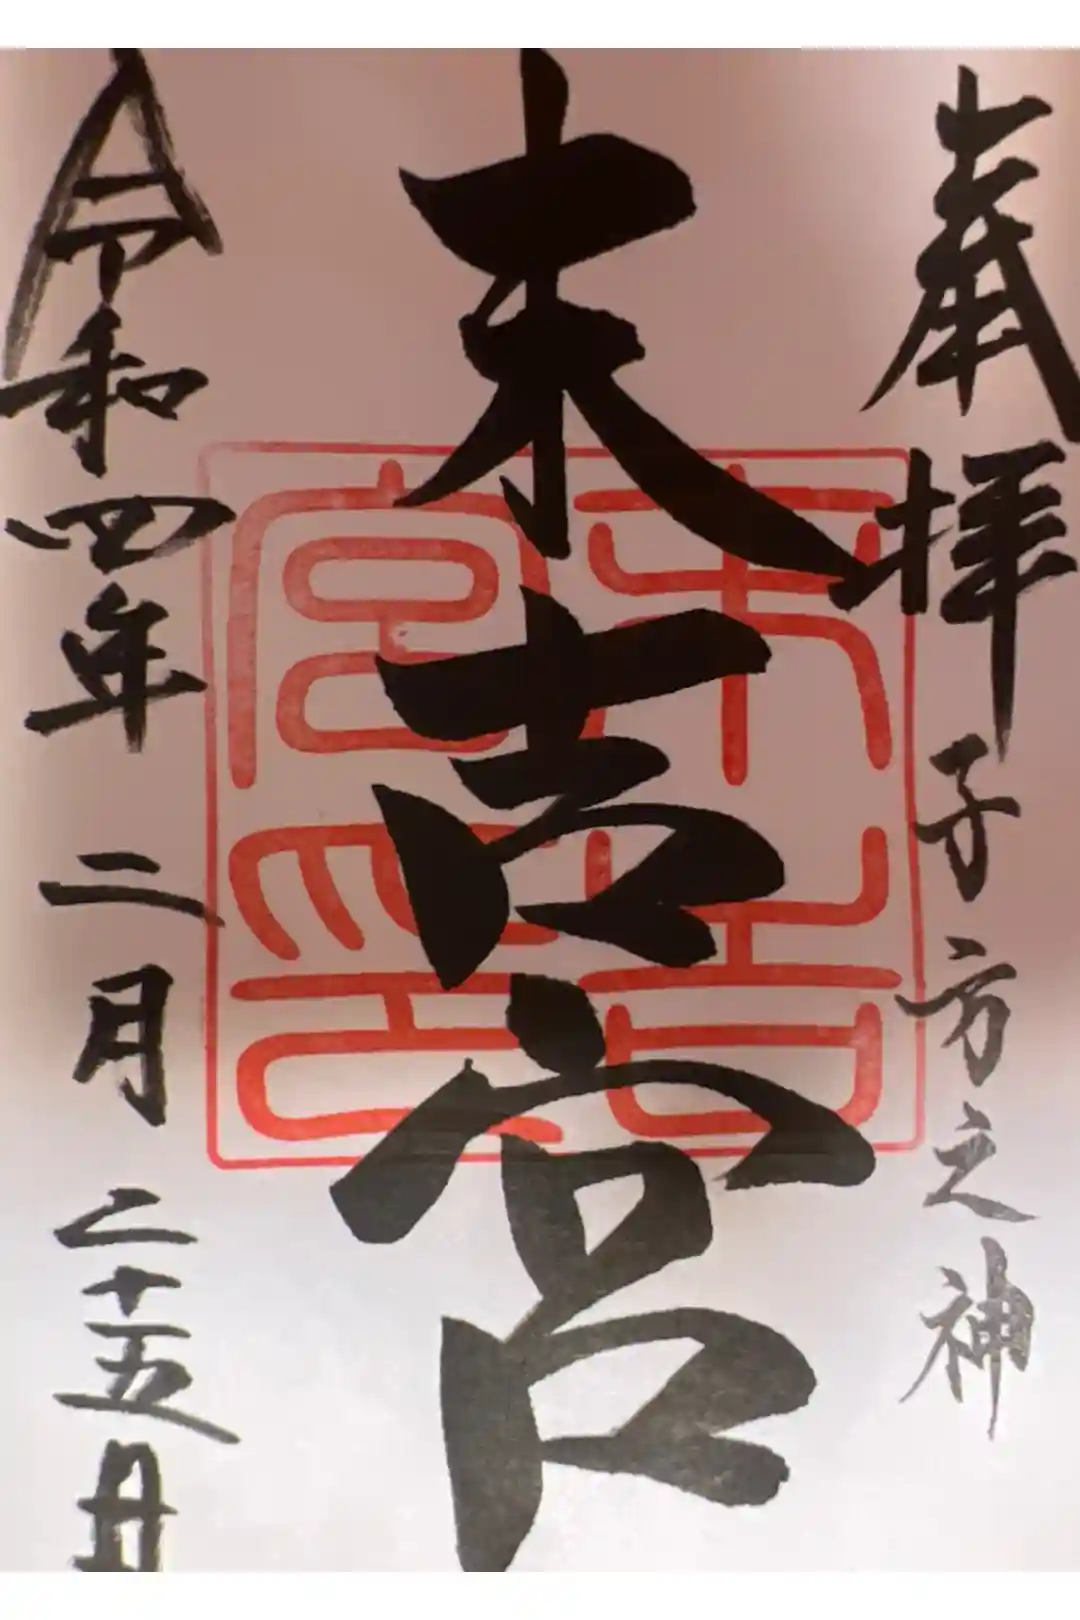 奉拝 子方之神
末吉宮
令和四年 二月 二十五日
末吉宮印